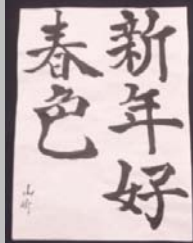 新年好
春色